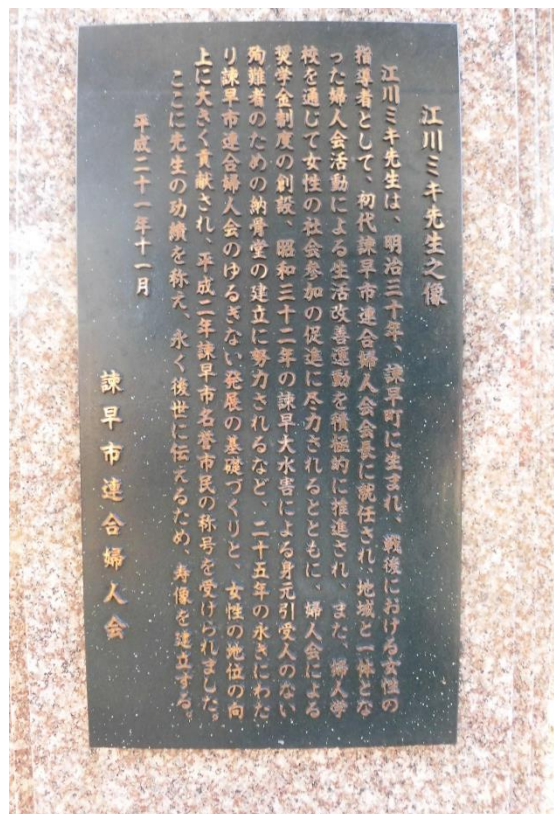 江川ミキ先生之像
江川ミキ先生は、明治三十年、諫早町に生まれ、戦後における女性の
指導者として、初代諫早市連合婦人会会長に就任され、地域と一体とな
った婦人会活動による生活改善運動を積極的に推進され、また、婦人学
校を通じて女性の社会参加の促進に尽力されるとともに、婦人会による
奨学金制度の創設、昭和三十二年の諫早大水害による身元引受人のない
殉難者のための納骨堂の建立に努力されるなど、二十五年の永きにわた
り諫早市連合婦人会のゆるぎない発展の基礎づくりと、女性の地位の向
上に大きく貢献され、平成二年諫早市名誉市民の称号を受けられました。
ここに先生の功績を称え、永く後世に伝えるため、寿像を建立する。
平成二十一年十一月
諫早市連合婦人会